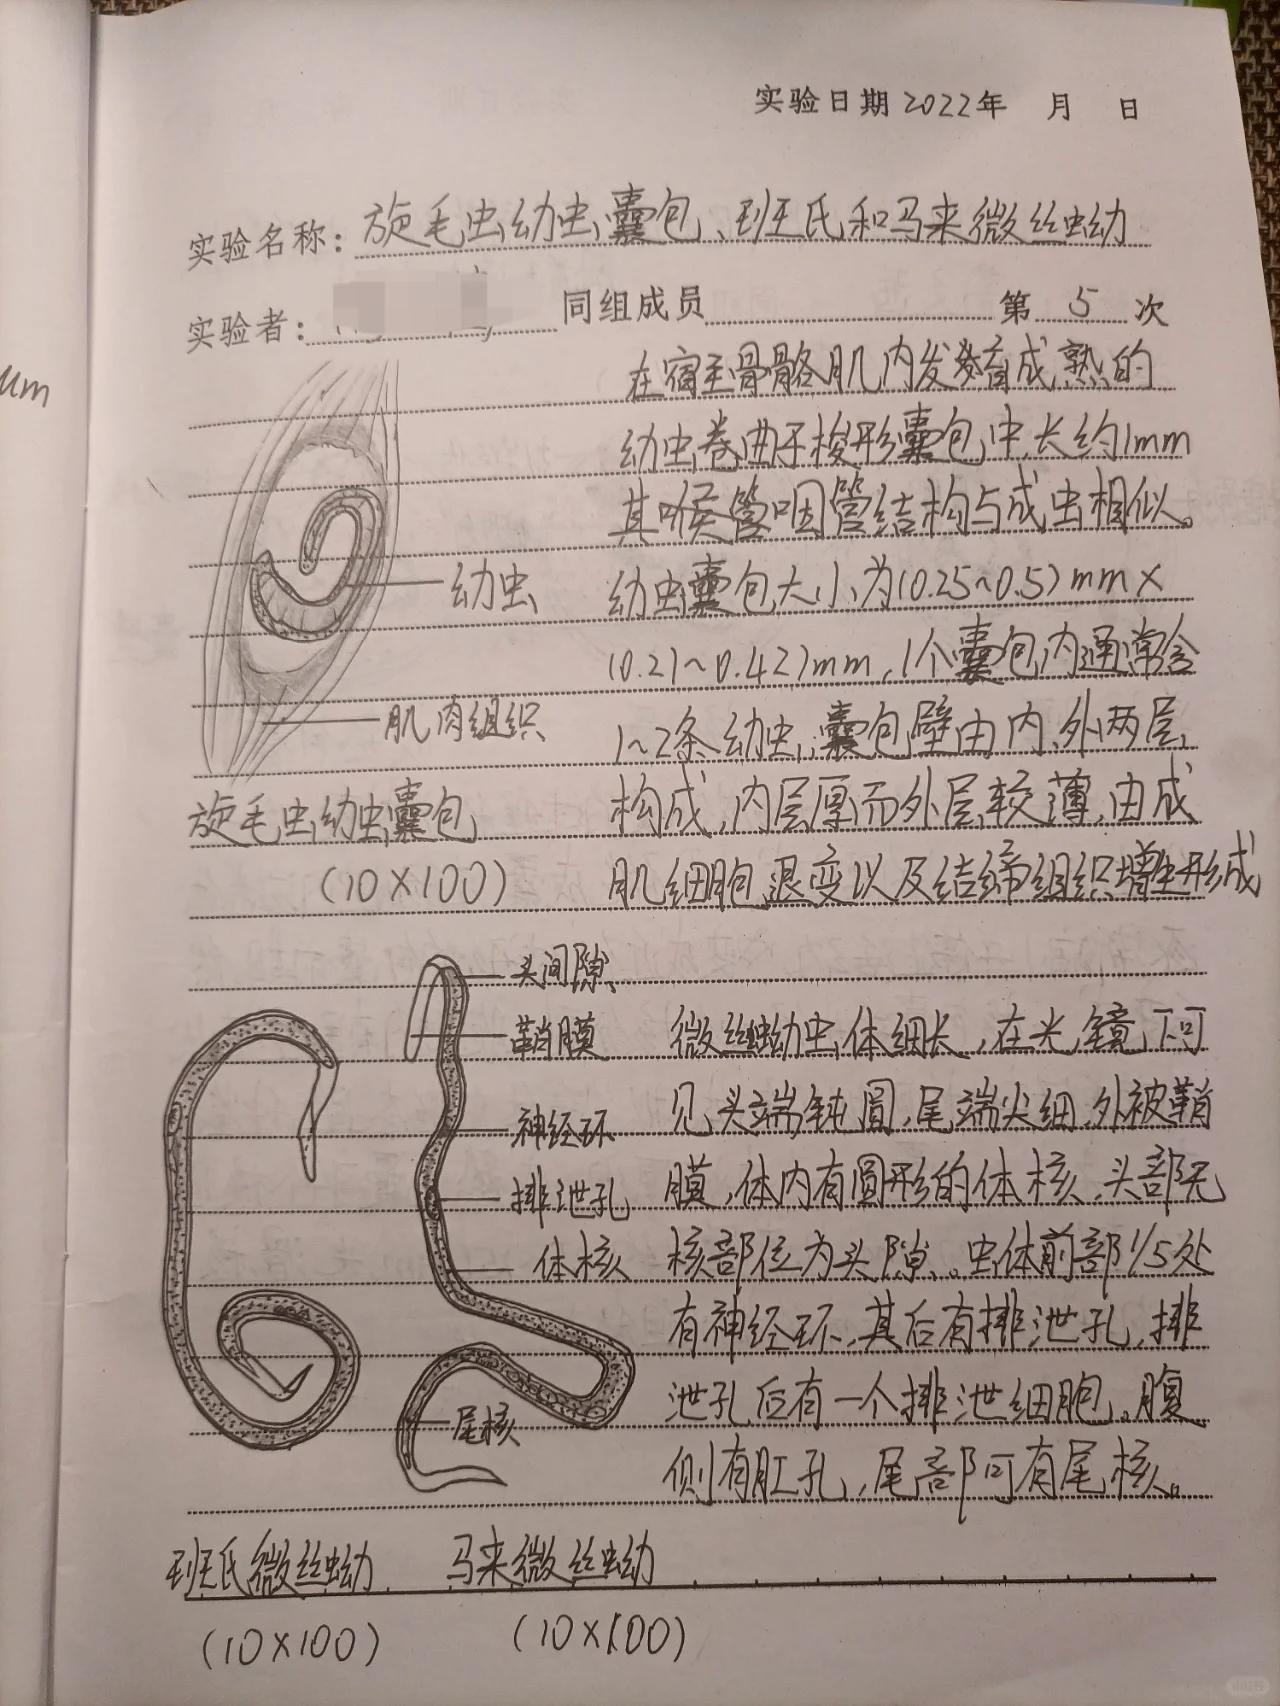 实验日期 2022年 月 日
实验名称: 旋毛虫幼虫囊包、班氏和马来微丝蚴
实验者: 同组成员 第 5 次
um
在宿主骨骼肌内发育成熟的
幼虫卷曲于梭形囊包中,长约1mm
其喉管咽管结构与成虫相似。
幼虫囊包大小为(0.25~0.5)mm×
(0.21~0.42)mm,1个囊包内通常含
1~2条幼虫,囊包壁由内、外两层
构成,内层厚而外层较薄,由成
肌细胞退变以及结缔组织增生形成
幼虫
肌肉组织
旋毛虫幼虫囊包
(10×100)
头间隙
鞘膜
神经环
排泄孔
体核
尾核
微丝蚴幼虫体细长,在光镜下可
见,头端钝圆,尾端尖细,外被鞘
膜,体内有圆形的体核,头部无
核部位为头隙。虫体前部1/5处
有神经环,其后有排泄孔,排
泄孔后有一个排泄细胞。腹
侧有肛孔,尾部可有尾核。
班氏微丝蚴 马来微丝蚴
(10×100) (10×100)